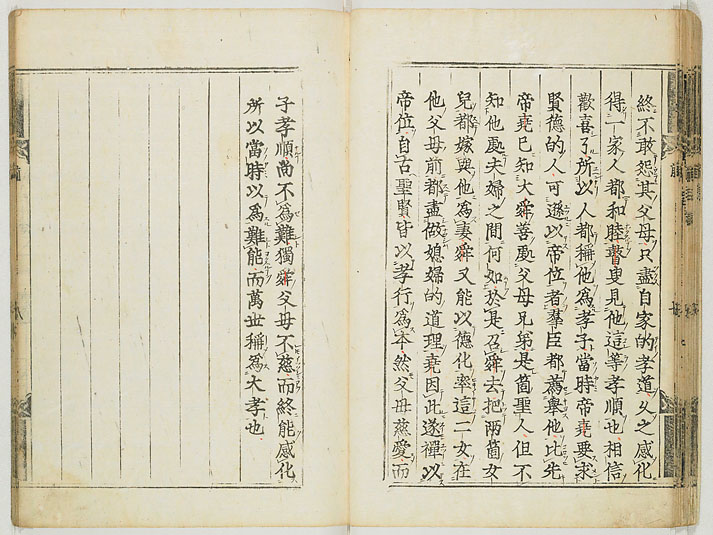 終不敢怨其父母只盡自家的孝道久之感化
得一家人都和睦瞽叟見他這等孝順也相信
歡喜了所以人都稱他為孝子當時帝堯要求
賢德的人可遜以帝位者羣臣都薦舉他比先
帝堯已知大舜善處父母兄弟是箇聖人但不
知他處夫婦之間何如於是召舜去把兩箇女
兒都嫁與他為妻舜又能以德化率這二女在
他父母前都盡做媳婦的道理堯因此遂禪以
帝位自古聖賢皆以孝行為本然父母慈愛而
子孝順尚不為難獨舜父母不慈而終能感化
所以當時以為難能而萬世稱為大孝也